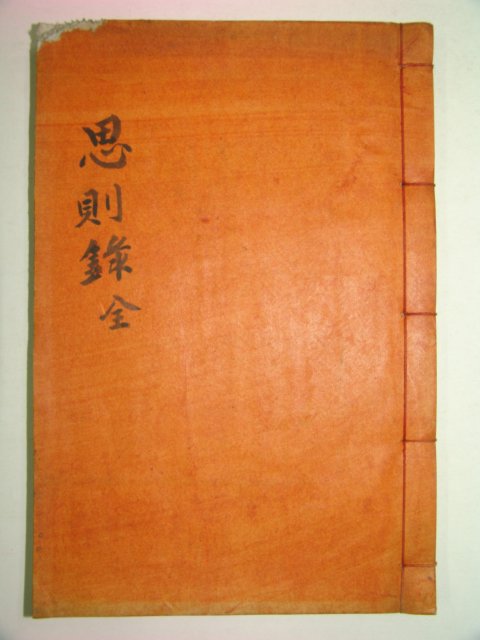 思則錄全